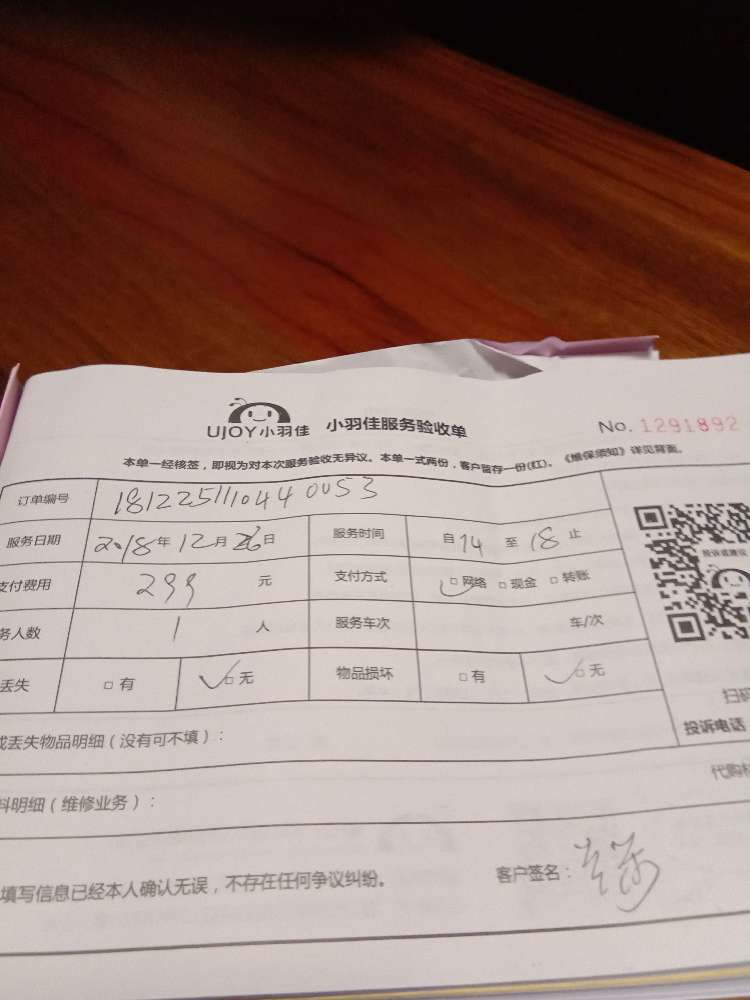 UJOY小羽佳 小羽佳服务验收单 No. 1291892
本单一经核签，即视为对本次服务验收无异议。本单一式两份，客户留存一份(红)。《维保须知》详见背面。
订单编号 18122511104400053
服务日期 2018年12月26日 服务时间 自14至18止
支付费用 299 元 支付方式 □网络 □现金 □转账
务人数 1 人 服务车次 车/次
丢失 □有 □无 物品损坏 □有 □无
投诉或建议
扫码
投诉电话
或丢失物品明细（没有可不填）：
代购材
料明细（维修业务）：
填写信息已经本人确认无误，不存在任何争议纠纷。 客户签名：